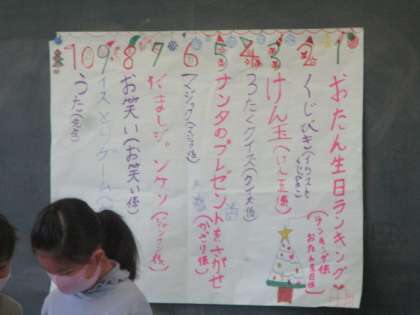 1 おたん生日ランキング♡(ランキング係 おたん生日係)
2 くじびき(イラストくじびき係)
3 けん玉(けん玉係)
4 ろたくクイズ(クイズ係)
5 サンタのプレゼントをさがせ(かざり係)
6 マジック(マジック係)
7 だましジャンケン(ジャンケン係)
8 お笑い(お笑い係)
9 イスとりゲーム(
10 うた(先生)